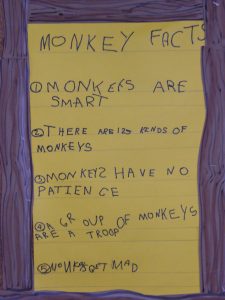 MONKEY FACTS
① MONKEYS ARE
SMART
② THERE ARE 125 KINDS OF
MONKEYS
③ MONKEYS HAVE NO
PATIENCE
④ A GROUP OF MONKEYS
ARE A TROOP
⑤ GET MAD